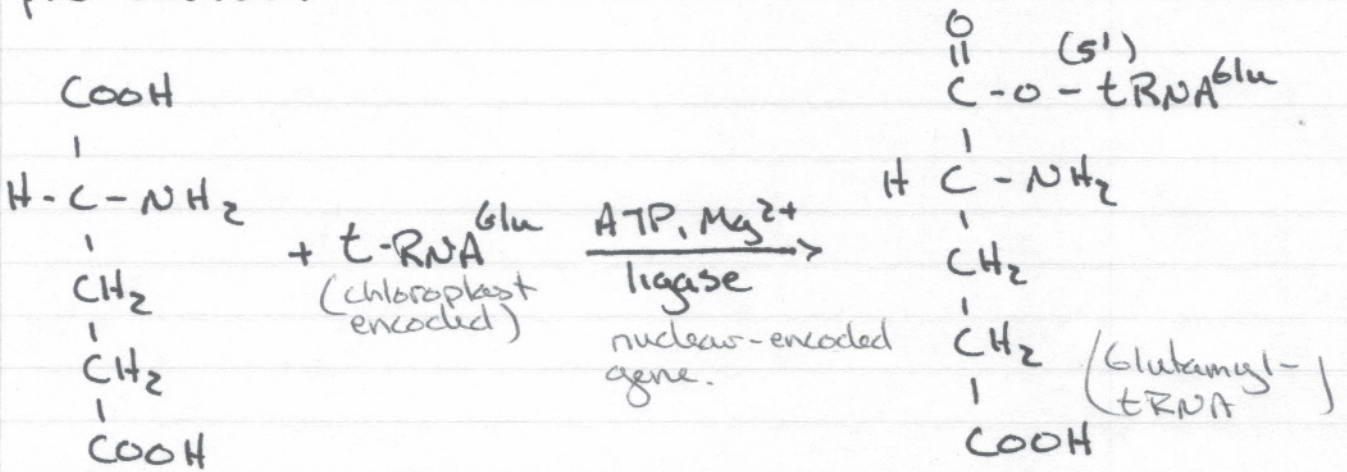 COOH
H - C - NH2
CH2
CH2
COOH
+ t-RNA^Glu
(chloroplast
encoded)
ATP, Mg2+
ligase
nuclear-encoded
gene.
O
(5')
C - O - tRNA^Glu
H C - NH2
CH2
CH2
(Glutamyl-
tRNA)
COOH